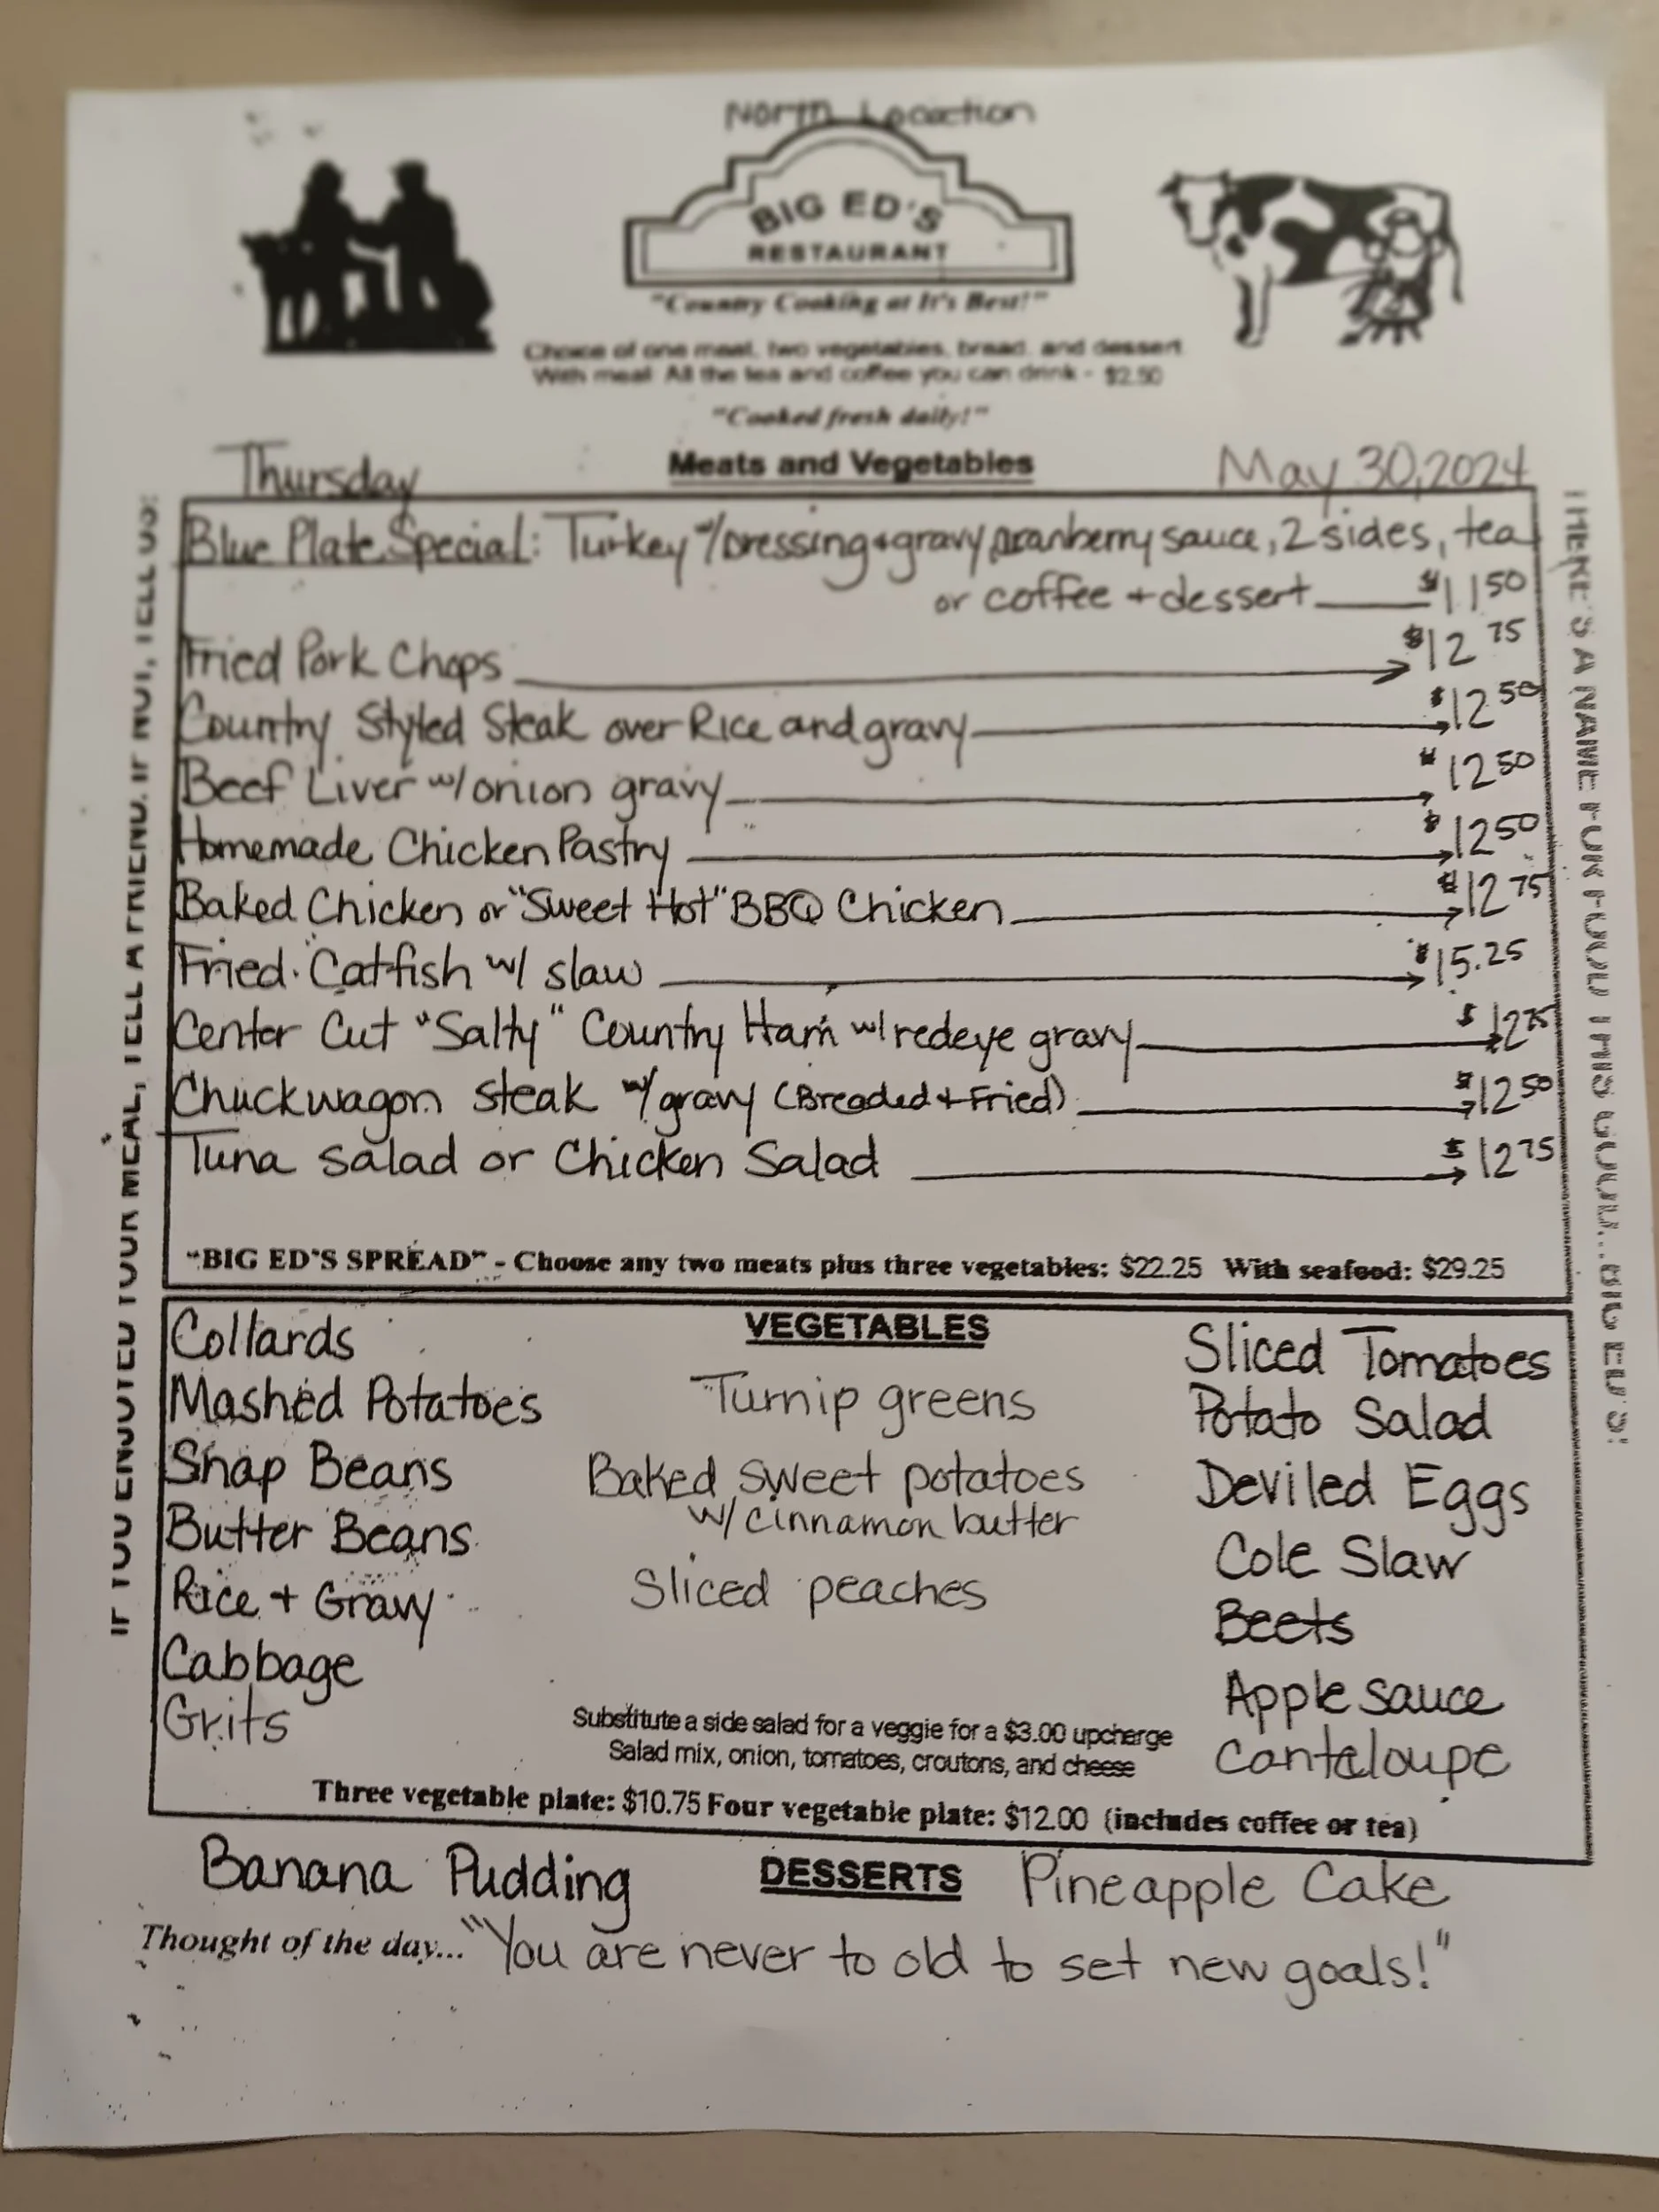 North Location
BIG ED'S
RESTAURANT
"Country Cooking at It's Best!"
Choice of one meat, two vegetables, bread, and dessert
With meal: All the tea and coffee you can drink - $2.50
"Cooked fresh daily!"
Thursday Meats and Vegetables May 30, 2024
Blue Plate Special: Turkey w/Dressing + gravy, cranberry sauce, 2 sides, tea
or coffee + dessert $11 50
Fried Pork Chops $12 75
Country Styled Steak over Rice and gravy $12 50
Beef Liver w/ onion gravy $12 50
Homemade Chicken Pastry $12 50
Baked Chicken or "Sweet Hot" BBQ Chicken $12 75
Fried Catfish w/ slaw $15.25
Center Cut "Salty" Country Ham w/ redeye gravy $12 75
Chuckwagon steak w/ gravy (Breaded + Fried) $12 50
Tuna salad or Chicken Salad $12 75
"BIG ED'S SPREAD" - Choose any two meats plus three vegetables: $22.25 With seafood: $29.25
VEGETABLES
Collards
Mashed Potatoes
Snap Beans
Butter Beans
Rice + Gravy
Cabbage
Grits
Turnip greens
Baked sweet potatoes
w/ cinnamon butter
Sliced peaches
Sliced Tomatoes
Potato Salad
Deviled Eggs
Cole Slaw
Beets
Apple sauce
Cantaloupe
Substitute a side salad for a veggie for a $3.00 upcharge
Salad mix, onion, tomatoes, croutons, and cheese
Three vegetable plate: $10.75 Four vegetable plate: $12.00 (includes coffee or tea)
Banana Pudding DESSERTS Pineapple Cake
Thought of the day... "You are never to old to set new goals!"
IF YOU ENJOYED YOUR MEAL, TELL A FRIEND. IF NOT, TELL US!
THERE'S A NAME FOR FOOD THIS GOOD... BIG ED'S!